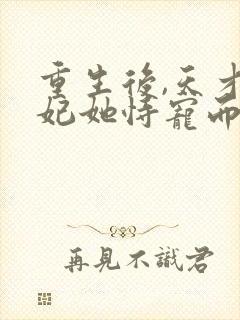 重生後,天才
妃她恃寵而
再見不識君